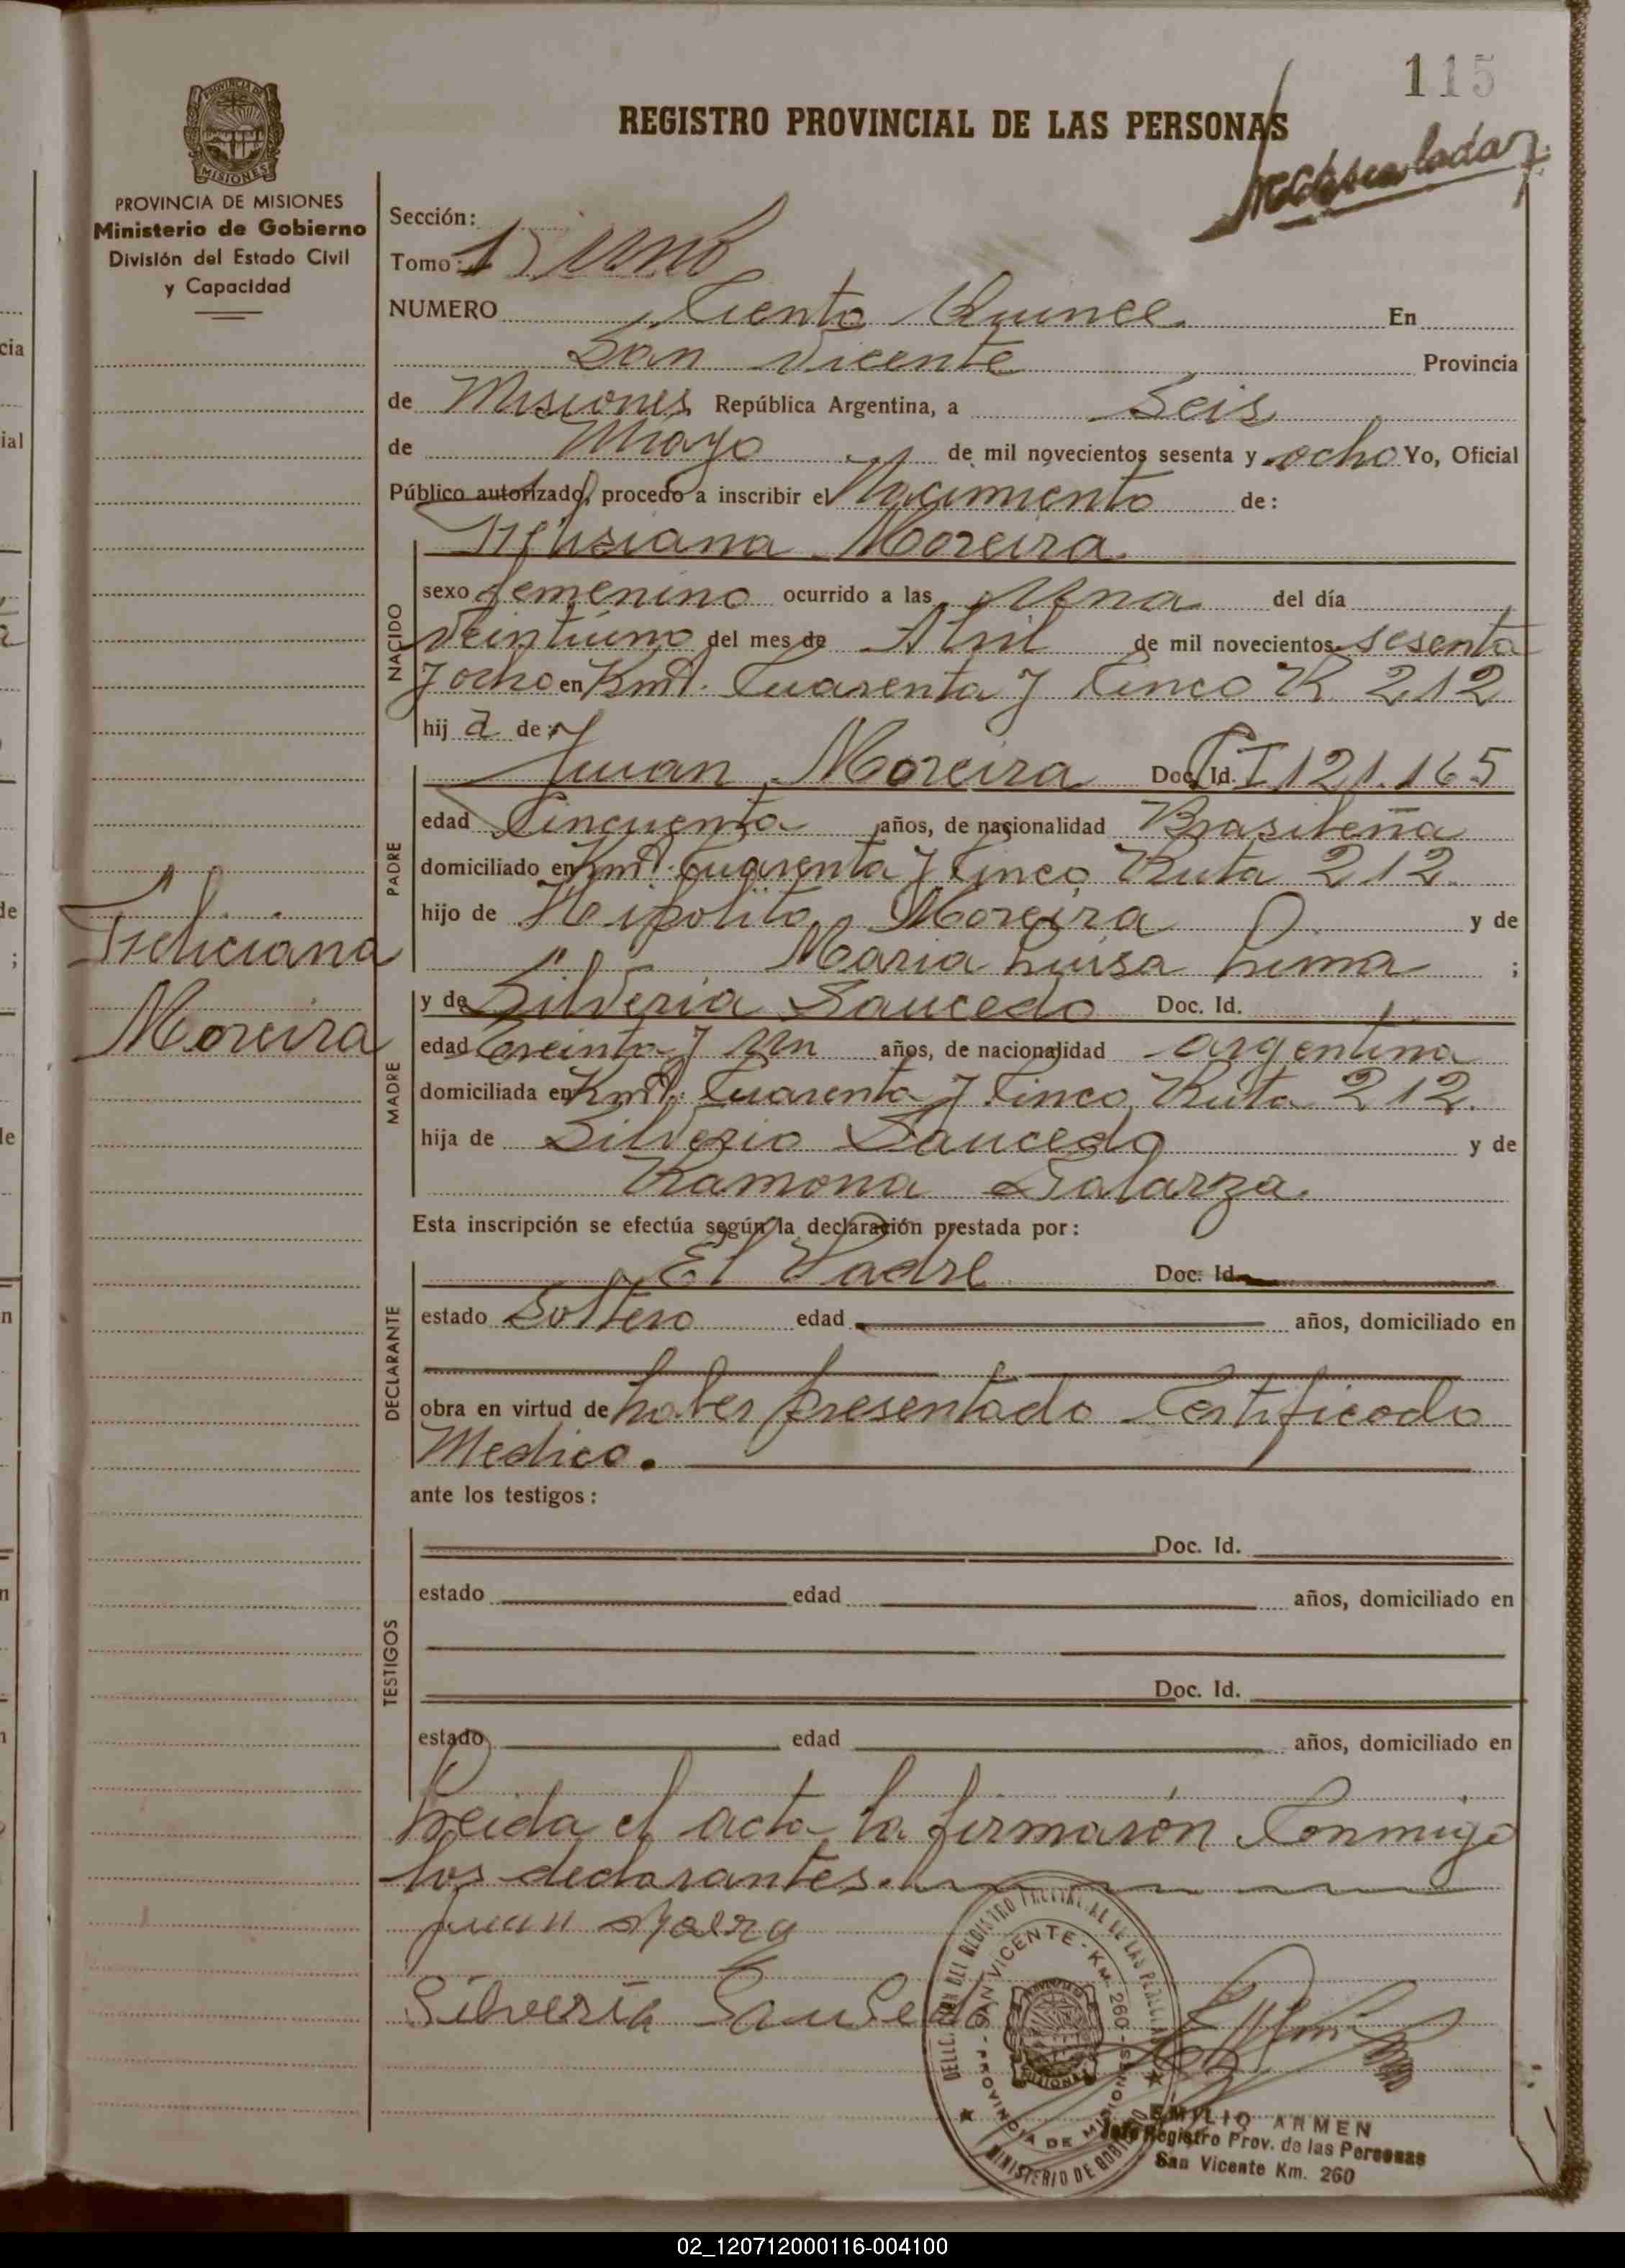 115
REGISTRO PROVINCIAL DE LAS PERSONAS
PROVINCIA DE MISIONES
Ministerio de Gobierno
División del Estado Civil
y Capacidad
Sección:
Tomo: 1) uno
NUMERO Ciento Quince En
San Vicente Provincia
de Misiones República Argentina, a Seis
de Mayo de mil novecientos sesenta y ocho Yo, Oficial
Público autorizado, procedo a inscribir el Nacimiento de:
Moreira.
NACIDO
sexo femenino ocurrido a las Una del día
Veintiuno del mes de Abril de mil novecientos sesenta
y ocho en Kmt. Cuarenta y Cinco R. 212
hij a de:
PADRE
Juan Moreira Doc. Id. CI 121.165
edad Cincuenta años, de nacionalidad Brasileña
domiciliado en Kmt. Cuarenta y Cinco Ruta 212.
hijo de Hipolito Moreira y de
Maria Luisa Lima ;
Feliciana
Moreira
MADRE
y de Silveria Saucedo Doc. Id.
edad Treinta y Un años, de nacionalidad argentina
domiciliada en Kmt. Cuarenta y Cinco Ruta 212.
hija de Silverio Saucedo y de
Ramona Galarza.
Esta inscripción se efectúa según la declaración prestada por:
DECLARANTE
El Padre Doc. Id.
estado Soltero edad años, domiciliado en
obra en virtud de haber presentado Certificado
Medico.
ante los testigos:
TESTIGOS
Doc. Id.
estado edad años, domiciliado en
Doc. Id.
estado edad años, domiciliado en
Leida el acta la firmarón Conmigo
los declarantes.
Juan
Silveria Sausedo
SAN VICENTE - KM. 260 - PROVINCIA DE MISIONES
MINISTERIO DE GOBIERNO
EMILIO ARMEN
Jefe Registro Prov. de las Personas
San Vicente Km. 260
02_120712000116-004100